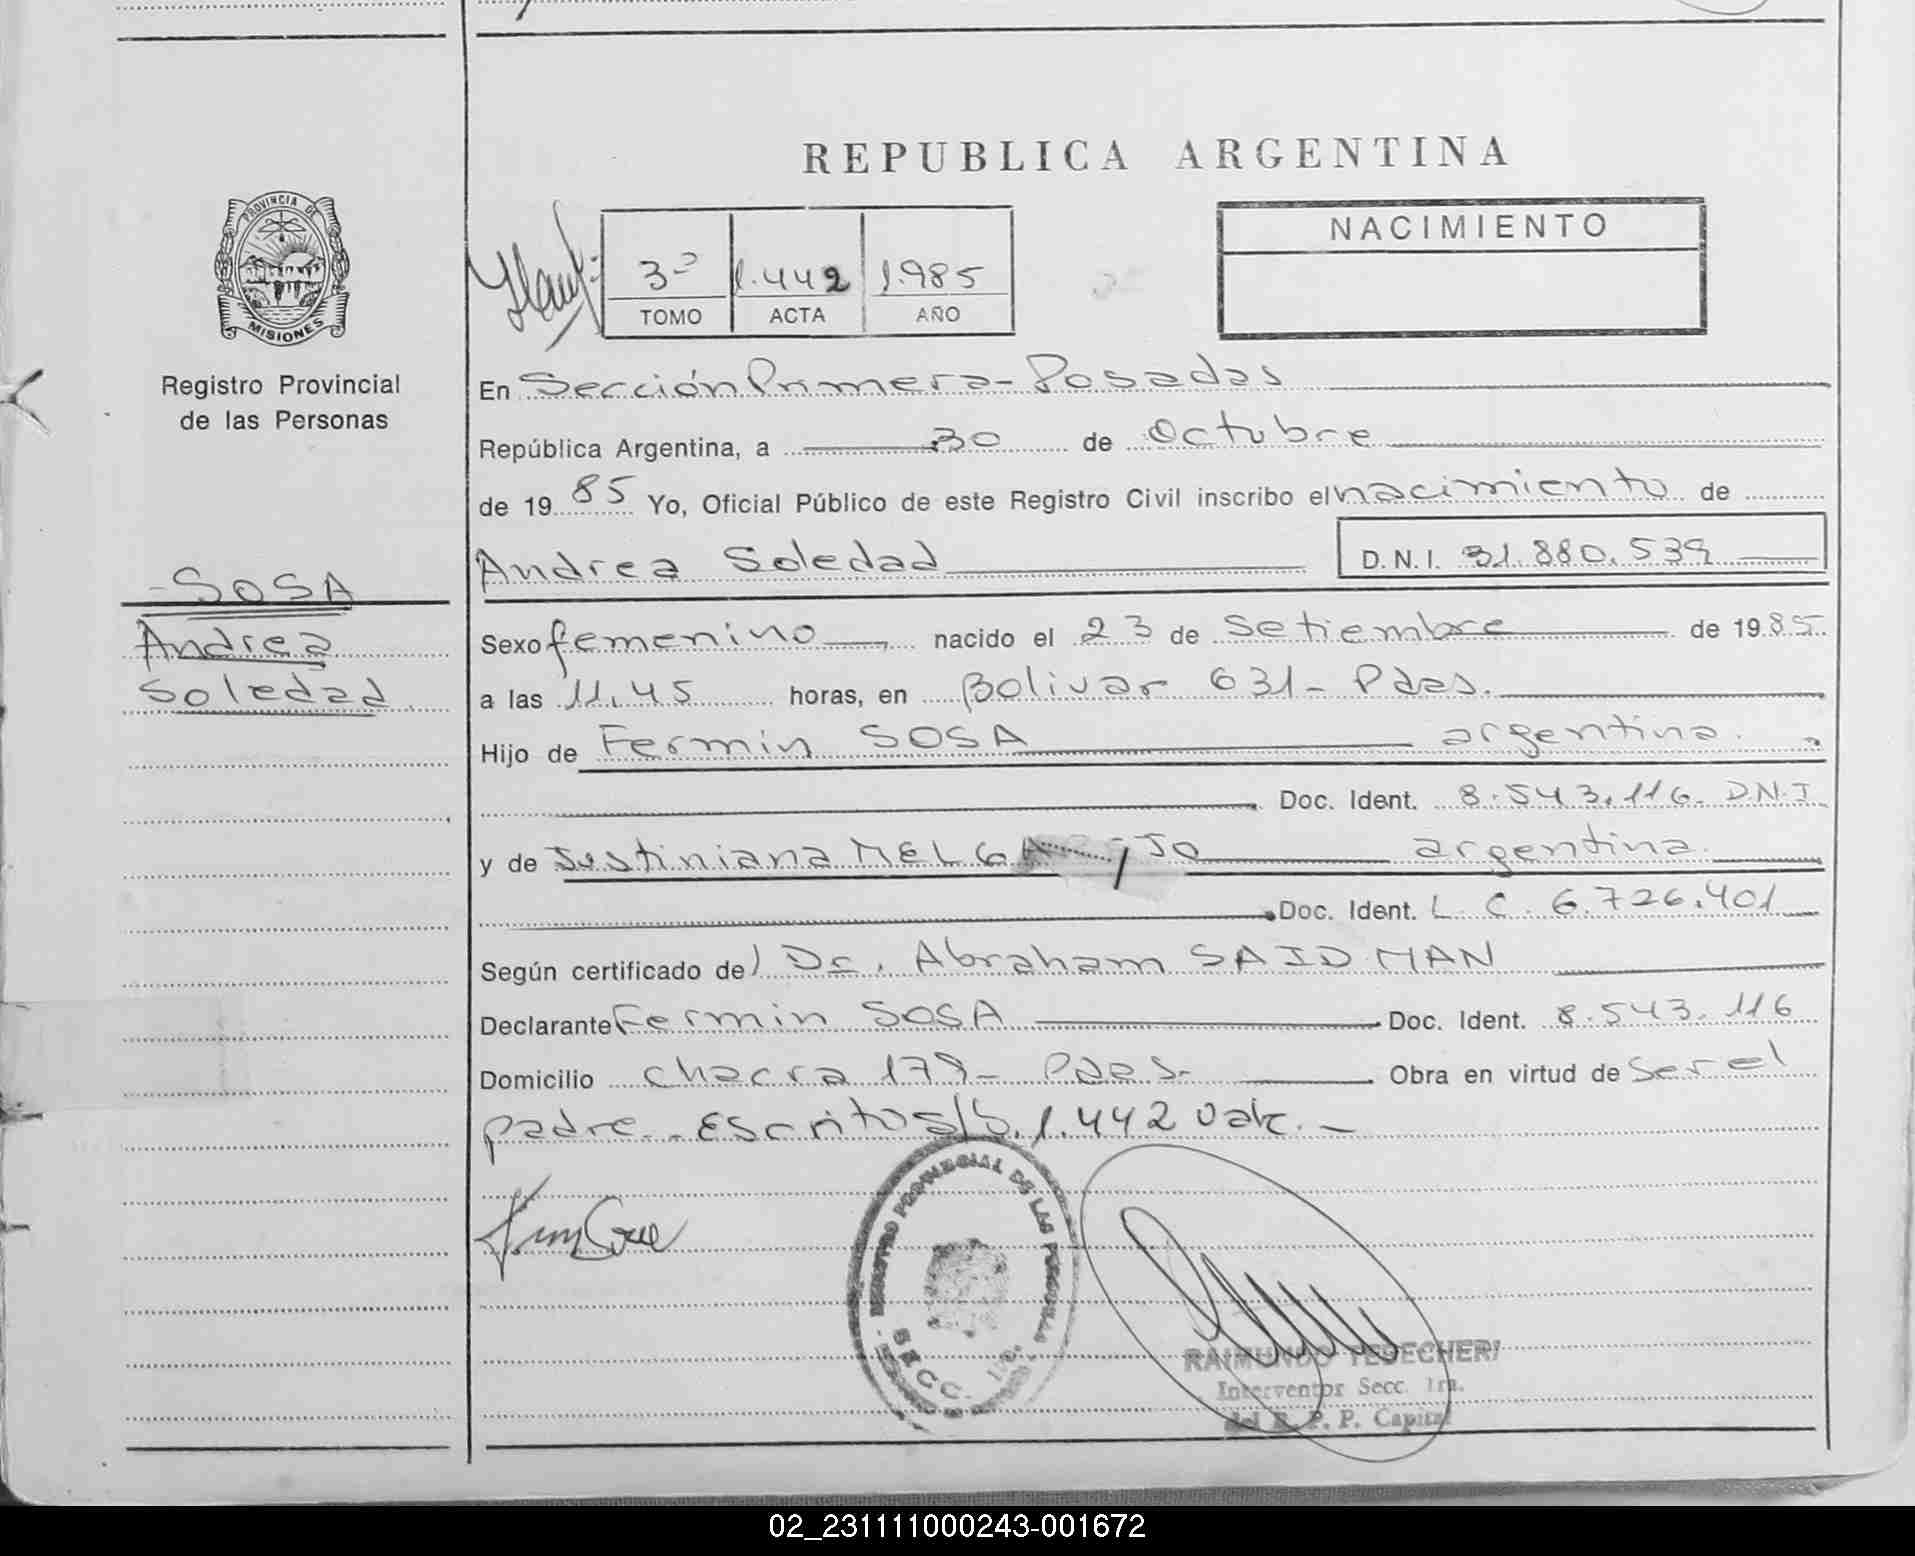 REPUBLICA ARGENTINA
PROVINCIA DE
MISIONES
Registro Provincial
de las Personas
3º 1.442 1.985
TOMO ACTA AÑO
NACIMIENTO
En Sección Primera - Posadas
República Argentina, a 30 de Octubre
de 1985 Yo, Oficial Público de este Registro Civil inscribo el nacimiento de
Andrea Soledad D.N.I. 31.880.539
- SOSA
Andrea
Soledad
Sexo femenino nacido el 23 de Setiembre de 1985
a las 11.45 horas, en Bolivar 631 - Pdas.
Hijo de Fermin SOSA argentina.
Doc. Ident. 8.543.116 D.N.I
y de Justiniana MELGA jo argentina.
Doc. Ident. L. C. 6.726.401
Según certificado de Dr. Abraham SAIDMAN
Declarante Fermin SOSA Doc. Ident. 8.543.116
Domicilio chacra 179 - Pdas. Obra en virtud de ser el
padre. Escrito s/b. 1.442 vale. -
REGISTRO PROVINCIAL DE LAS PERSONAS
SECC. 1ra.
RAIMUNDO TEDECHERI
Interventor Secc. 1ra.
del R. P. P. Capital
02_231111000243-001672